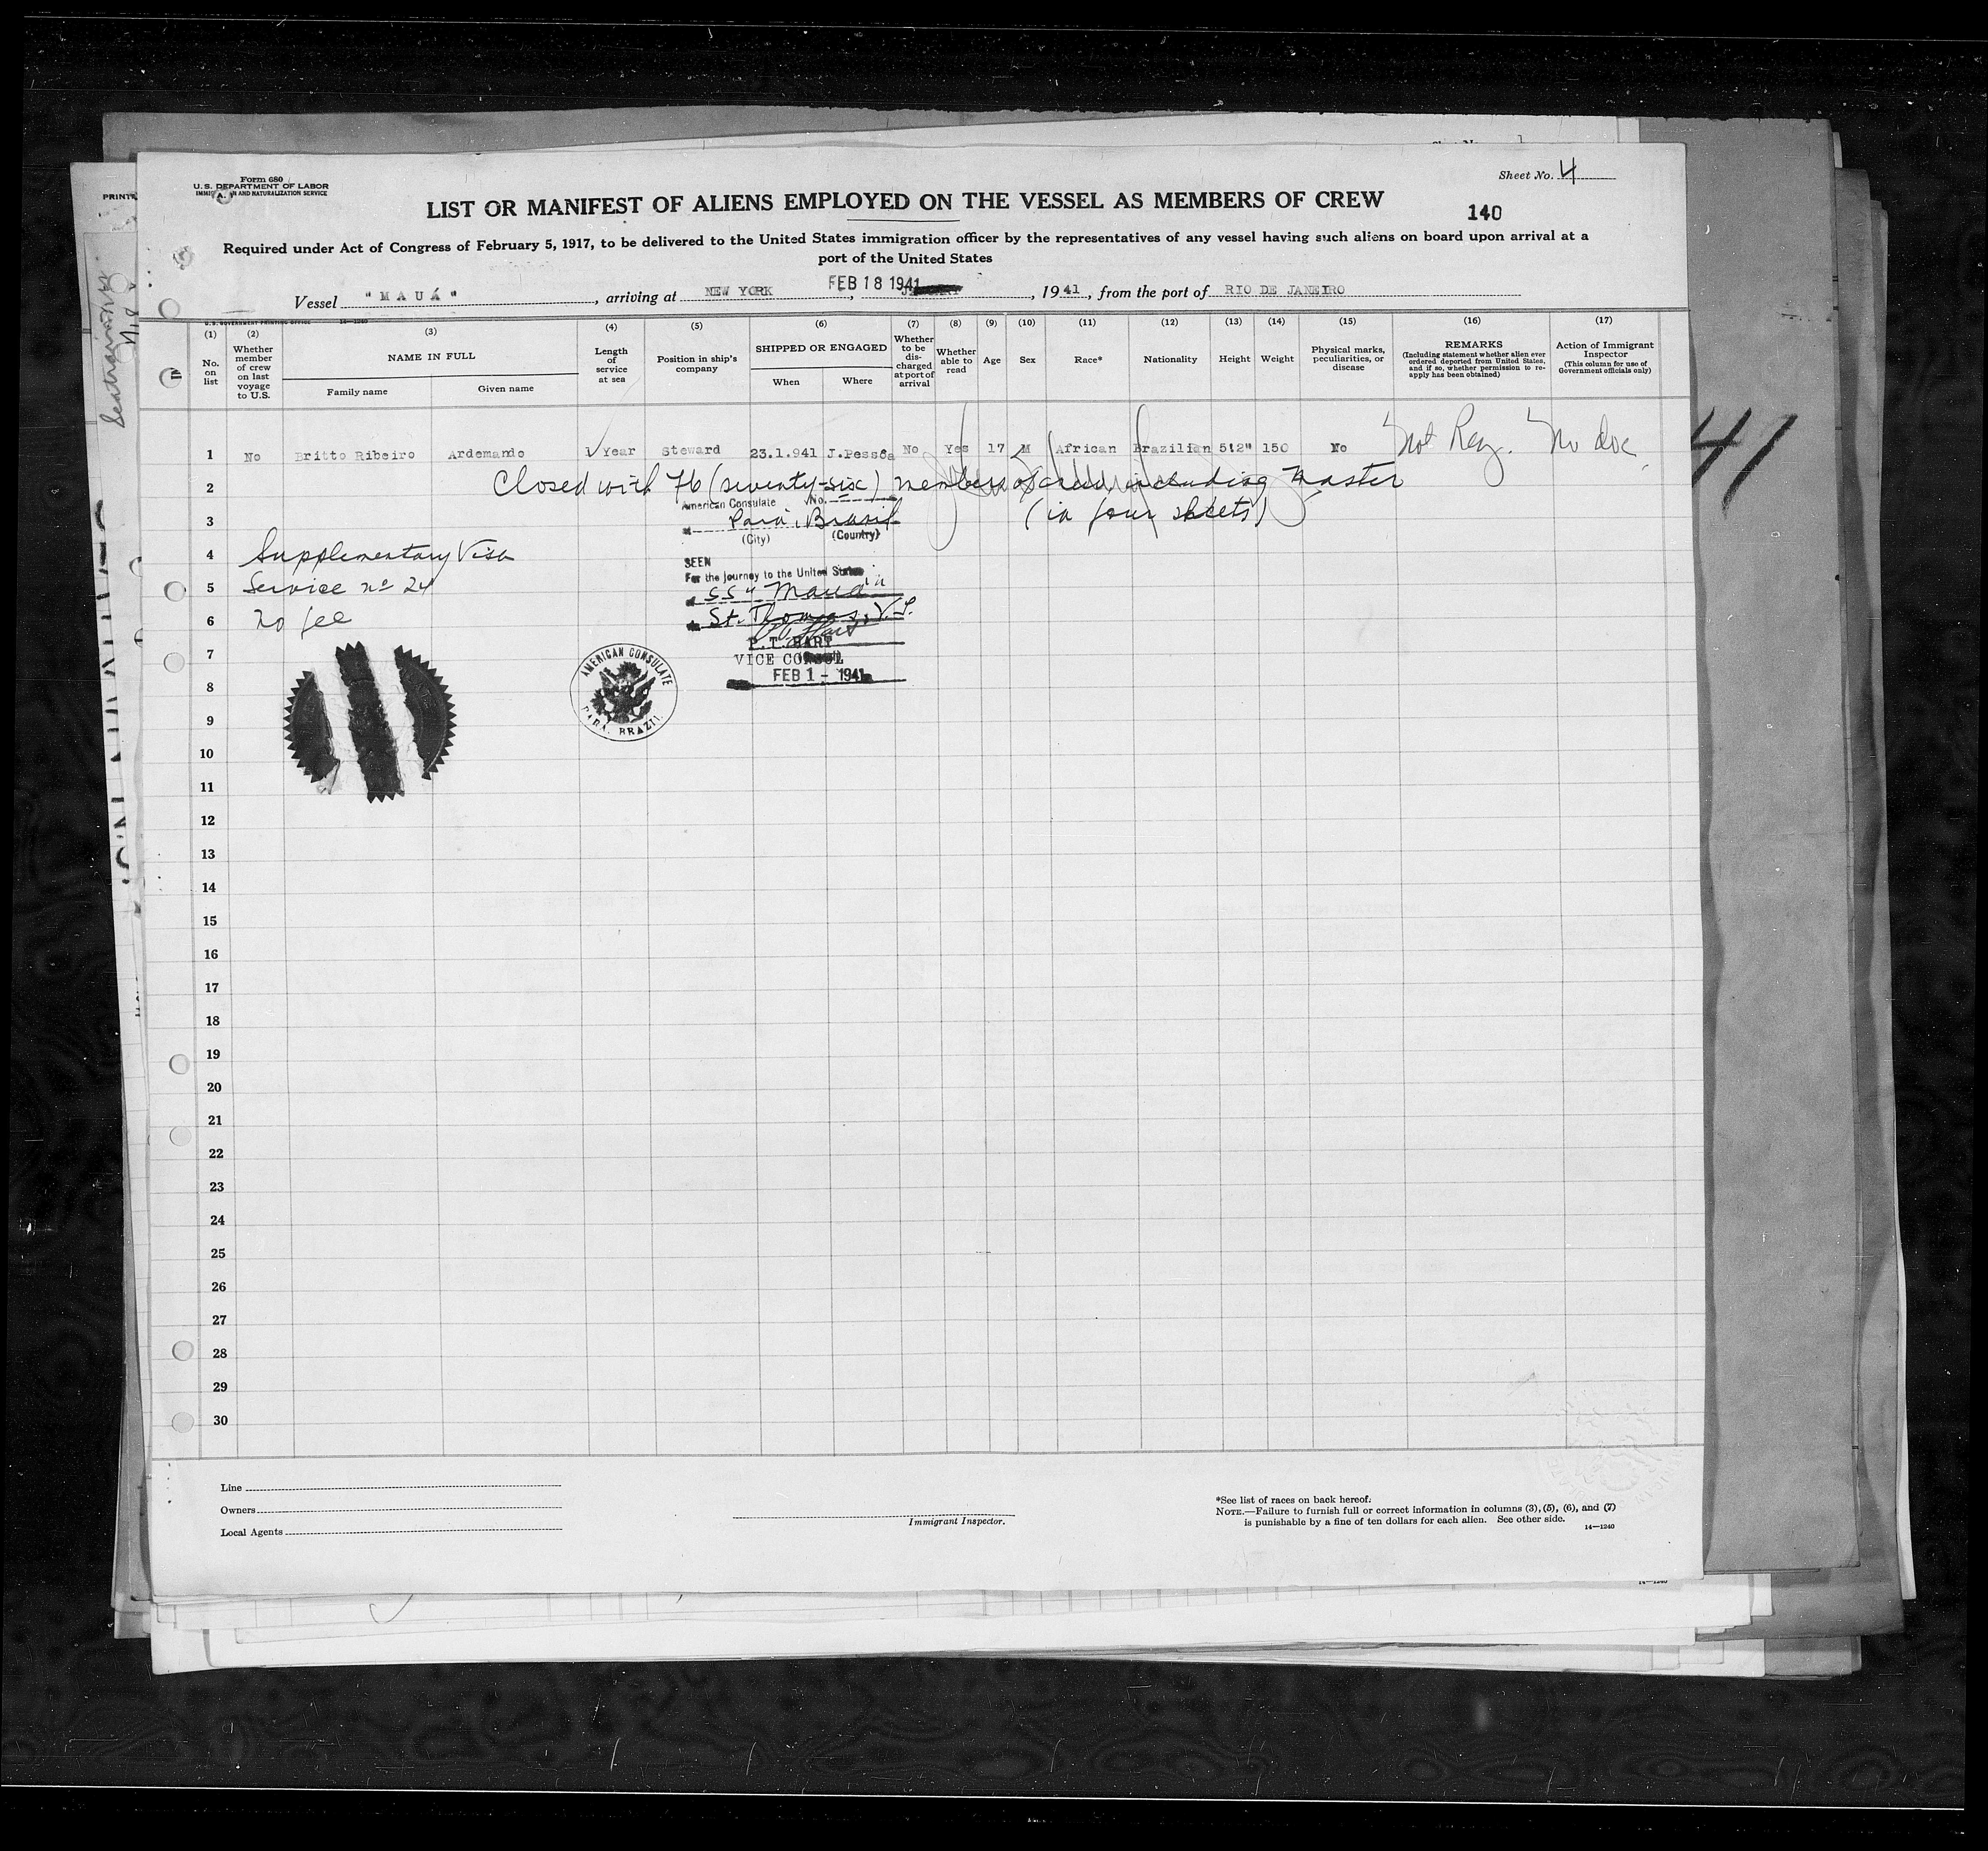 Form 680
U.S. DEPARTMENT OF LABOR
IMMIGRATION AND NATURALIZATION SERVICE
Sheet No. 4
LIST OR MANIFEST OF ALIENS EMPLOYED ON THE VESSEL AS MEMBERS OF CREW
140
Required under Act of Congress of February 5, 1917, to be delivered to the United States immigration officer by the representatives of any vessel having such aliens on board upon arrival at a
port of the United States
Vessel "MAUÁ", arriving at NEW YORK, FEB 18 1941, 1941, from the port of RIO DE JANEIRO
U.S. GOVERNMENT PRINTING OFFICE 14—1240
(1) (2) (3) (4) (5) (6) (7) (8) (9) (10) (11) (12) (13) (14) (15) (16) (17)
No. on list
Whether member of crew on last voyage to U.S.
NAME IN FULL
Family name
Given name
Length of service at sea
Position in ship's company
SHIPPED OR ENGAGED
When
Where
Whether to be discharged at port of arrival
Whether able to read
Age
Sex
Race*
Nationality
Height
Weight
Physical marks, peculiarities, or disease
REMARKS
(Including statement whether alien ever ordered deported from United States, and if so, whether permission to reapply has been obtained)
Action of Immigrant Inspector
(This column for use of Government officials only)
1 No Britto Ribeiro Ardemando 1 Year Steward 23.1.941 J.Pessôa No Yes 17 M African Brazilian 5'2" 150 No Not Reg. No doc.
2 Closed with 76 (seventy-six) members of crew, including Master
American Consulate No.
3 Pará, Brasil (in four sheets)
(City) (Country)
4 Supplementary Visa
SEEN
For the journey to the United States
5 Service nº 24 SS "Mauá" in
6 no fee St. Thomas, V.I.
P. T. HART
7 VICE CONSUL
8 FEB 1 - 1941
AMERICAN CONSULATE
PARA, BRAZIL
9
10
11
12
13
14
15
16
17
18
19
20
21
22
23
24
25
26
27
28
29
30
Line
Owners
Local Agents
Immigrant Inspector.
*See list of races on back hereof.
NOTE.—Failure to furnish full or correct information in columns (3), (5), (6), and (7)
is punishable by a fine of ten dollars for each alien. See other side.
14—1240
41